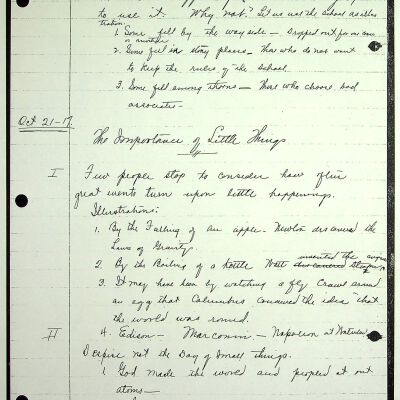 to use it. Why not? Let us use the School as illus
tration.
1. Some fell by the way side — Dropped out for one cause
or another
2. Some fell in stony places — Those who do not want
to keep the rules of the School.
3. Some fell among thorns — Those who choose bad
associates —
Oct 21-17
The Importance of Little Things
I Few people stop to consider how often
great events turn upon little happenings.
Illustrations:
1. By the Falling of an apple Newton discovered the
Laws of Gravity.
2. By the Boiling of a Kettle Watt invented the
3. It may have been by watching a fly Crawl around
an egg that Columbus conceived the idea that
the world was round.
4. Edison — Marconi — Napoleon at Waterloo
II Despise not the Day of Small things.
1 God made the world and peopled it out
atoms —